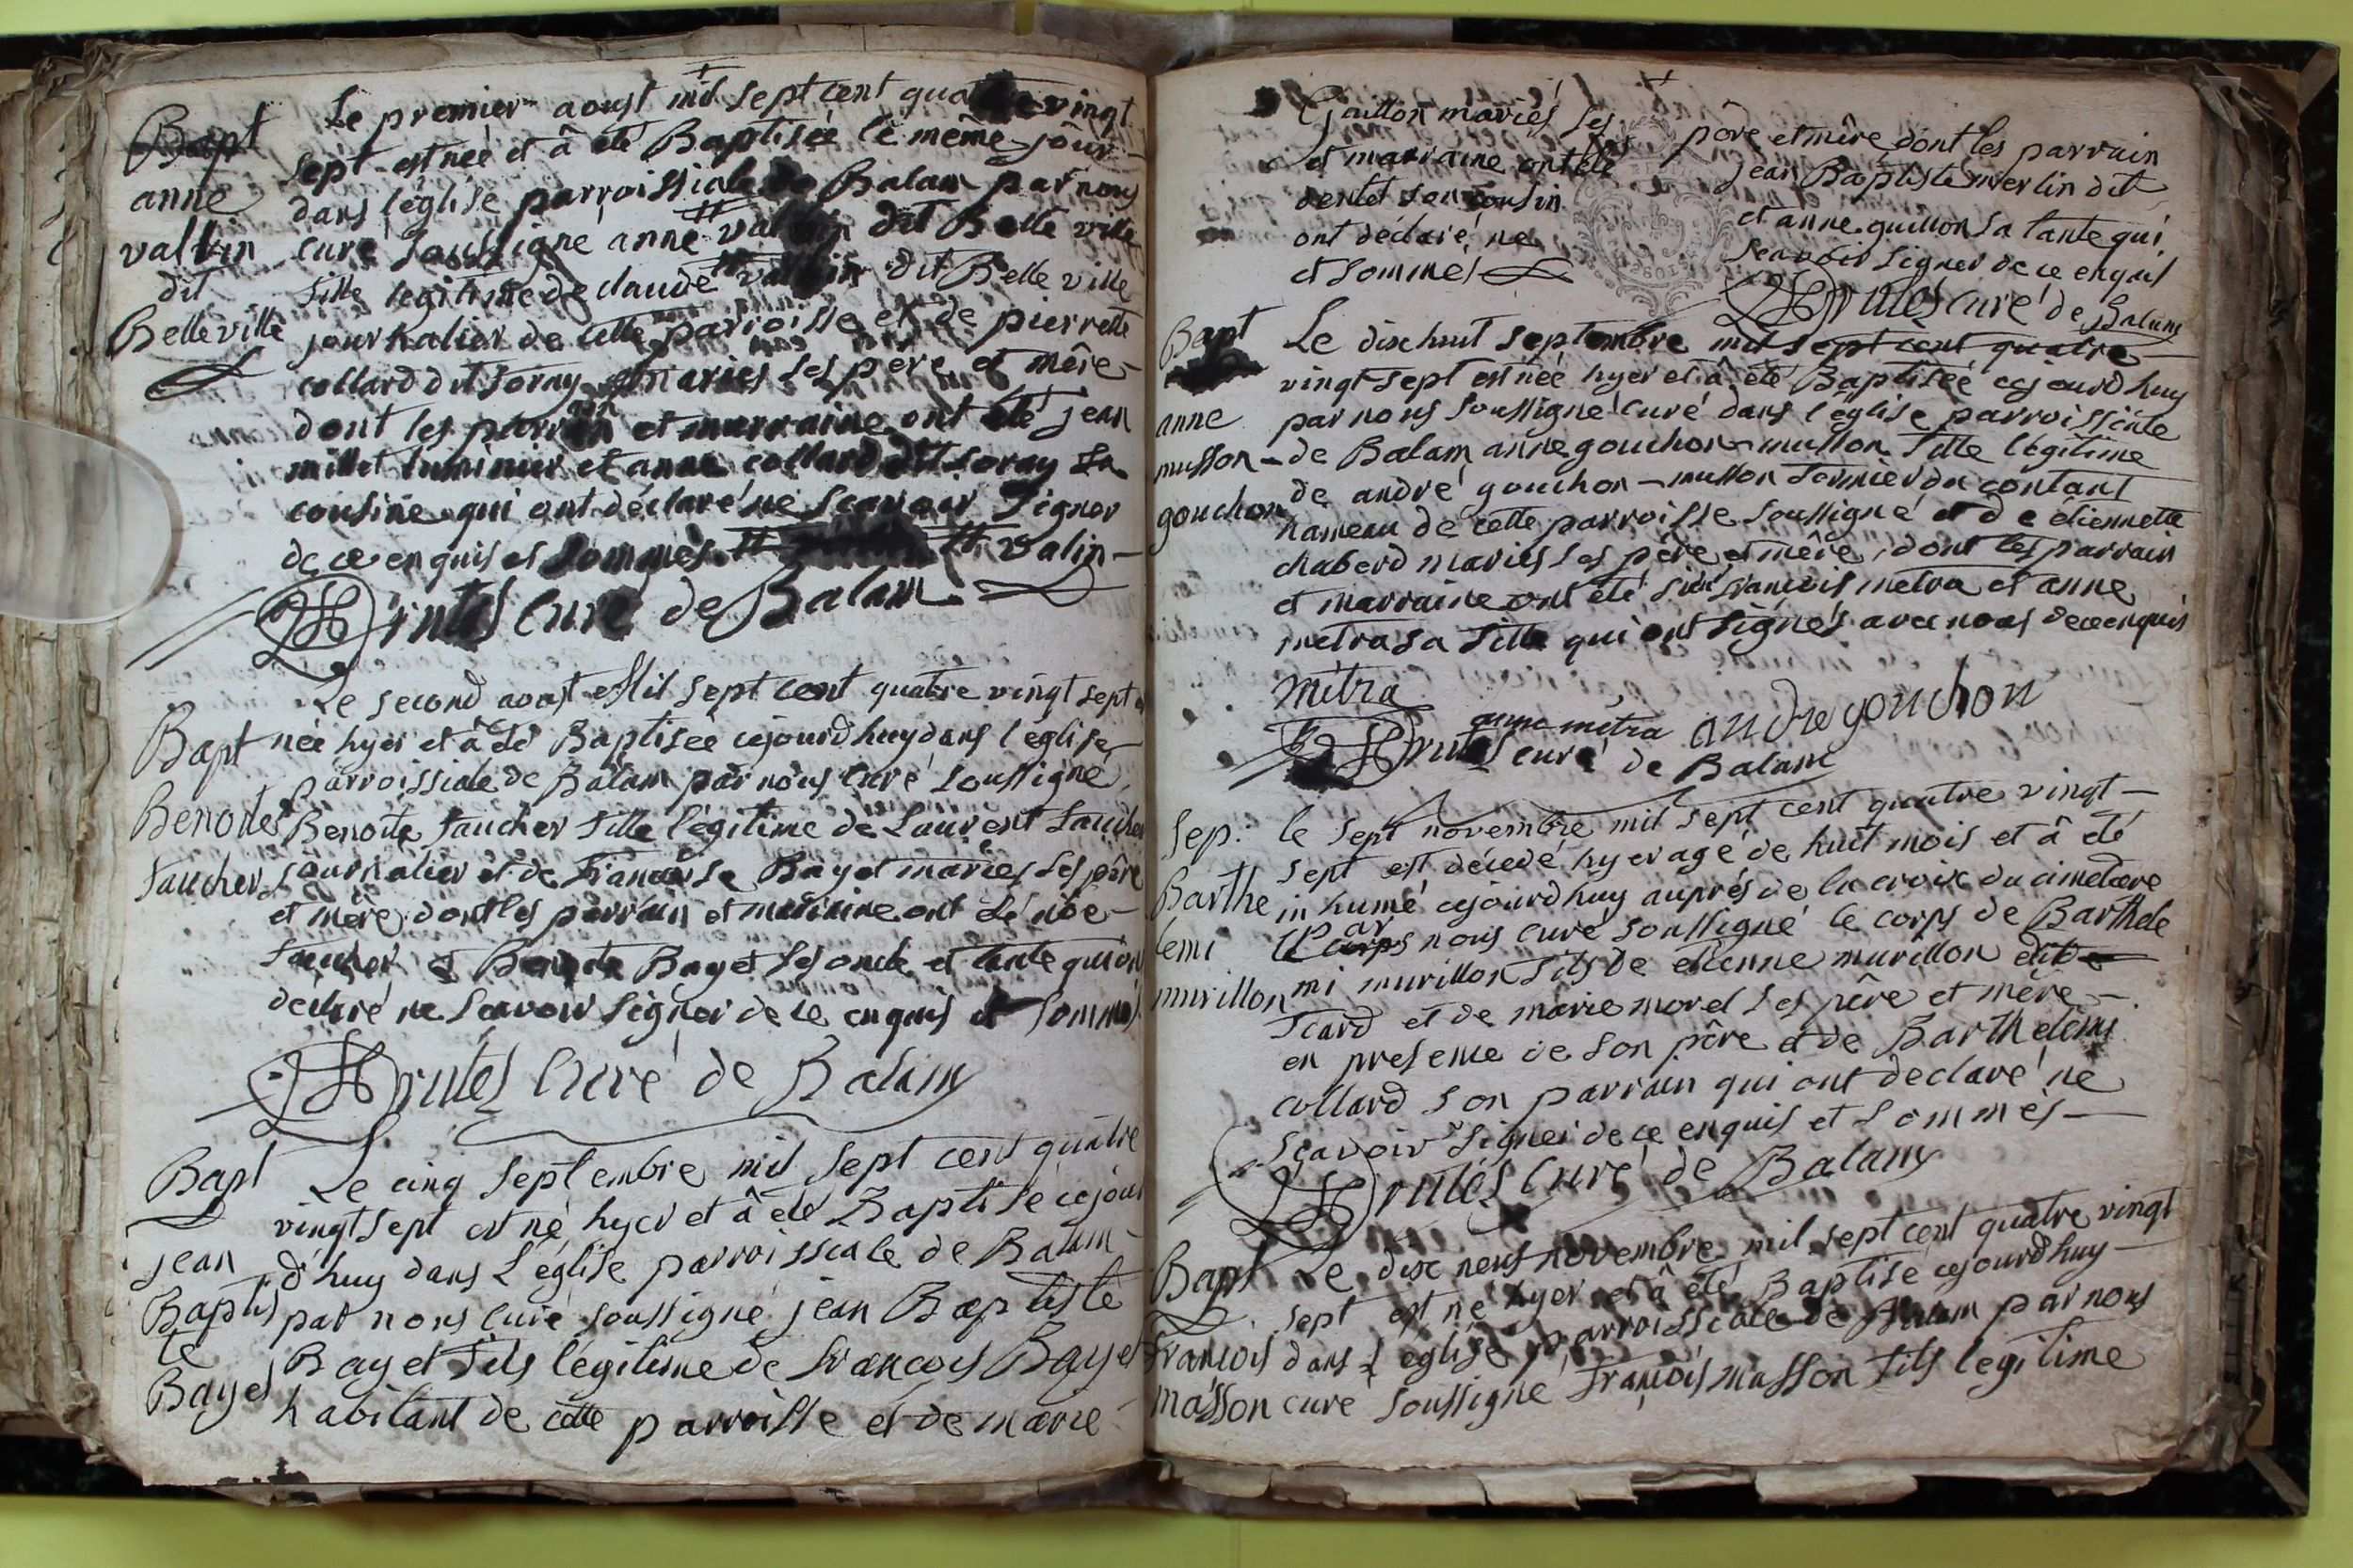 Bapt
anne
vallin
dit
Belleville
Le premier aoust mil sept cent quatre vingt
sept est née et â été Baptisée le même jour
dans l'église parroissiale de Balam par nous
curé soussigné anne dit Belle ville
fille legitime de claude dit Belle ville
journalier de cette parroisse et de pierrette
collard dit foray mariés ses pere et mêre
dont les parrain et marraine ont été jean
millet et anne collard dit foray sa
cousine qui ont déclaré ne scavoir signer
de ce enquis et sommés valin
curé de Balam
Bapt
Benoite
faucher
Le second aoust Mil sept cent quatre vingt sept
née hyer et â été Baptisée cejourdhuy dans l'église
parroissiale de Balam par nous curé soussigné
Benoite faucher fille légitime de Laurent faucher
journalier et de francoise Bayet mariés ses pêre
et mêre dont les parrain et marraine ont été
faucher et Benoite Bayet ses oncle et tante qui ont
déclaré ne scavoir signer de ce enquis et sommés
curé de Balam
Bapt
jean
Baptis
te
Bayet
Le cinq septembre mil sept cent quatre
vingt sept est né hyer et â été Baptisé cejour
d'huy dans L'église parroissiale de Balam
par nous curé soussigné jean Baptiste
Bayet fils légitime de francois Bayet
habitant de cette parroisse et de marie
Guillon mariés ses pêre et mêre dont les parrain
et marraine ont été jean Baptiste merlin dit
son cousin et anne guillon sa tante qui
ont déclaré ne scavoir signer de ce enquis
et sommés
curé de Balam
Bapt
anne
musson
gouchon
Le dixhuit septembre mil sept cent quatre
vingt sept est née hyer et â été Baptisée cejourdhuy
par nous soussigné curé dans l'église parroissiale
de Balam anne gouchon musson fille légitime
de andré gouchon musson fermier du contant
hameau de cette parroisse soussigné et de etiennette
chaberd mariés ses pére et mêre, dont les parrain
et marraine ont été sieur francois metra et anne
metra sa fille qui ont signés avec nous de ce enquis
mitra
anne mitra andre gouchon
curé de Balam
Sep.
Barthe
lemi
murillon
le sept novembre mil sept cent quatre vingt
sept est décedé hyer agé de huit mois et â été
inhumé cejourdhuy auprés de la croix du cimetiere
Par nous curé soussigné le corps de Barthele
mi murillon fils de etienne murillon dit
et de marie morel ses pêre et mêre
en presence de son pêre et de Barthelemi
collard son parrain qui ont declaré ne
scavoir signer de ce enquis et sommés
curé de Balam
Bapt
francois
masson
Le dix neuf novembre mil sept cent quatre vingt
sept est né hyer et â été Baptisé cejourdhuy
dans L'église parroissiale de Balam par nous
curé soussigné francois masson fils legitime